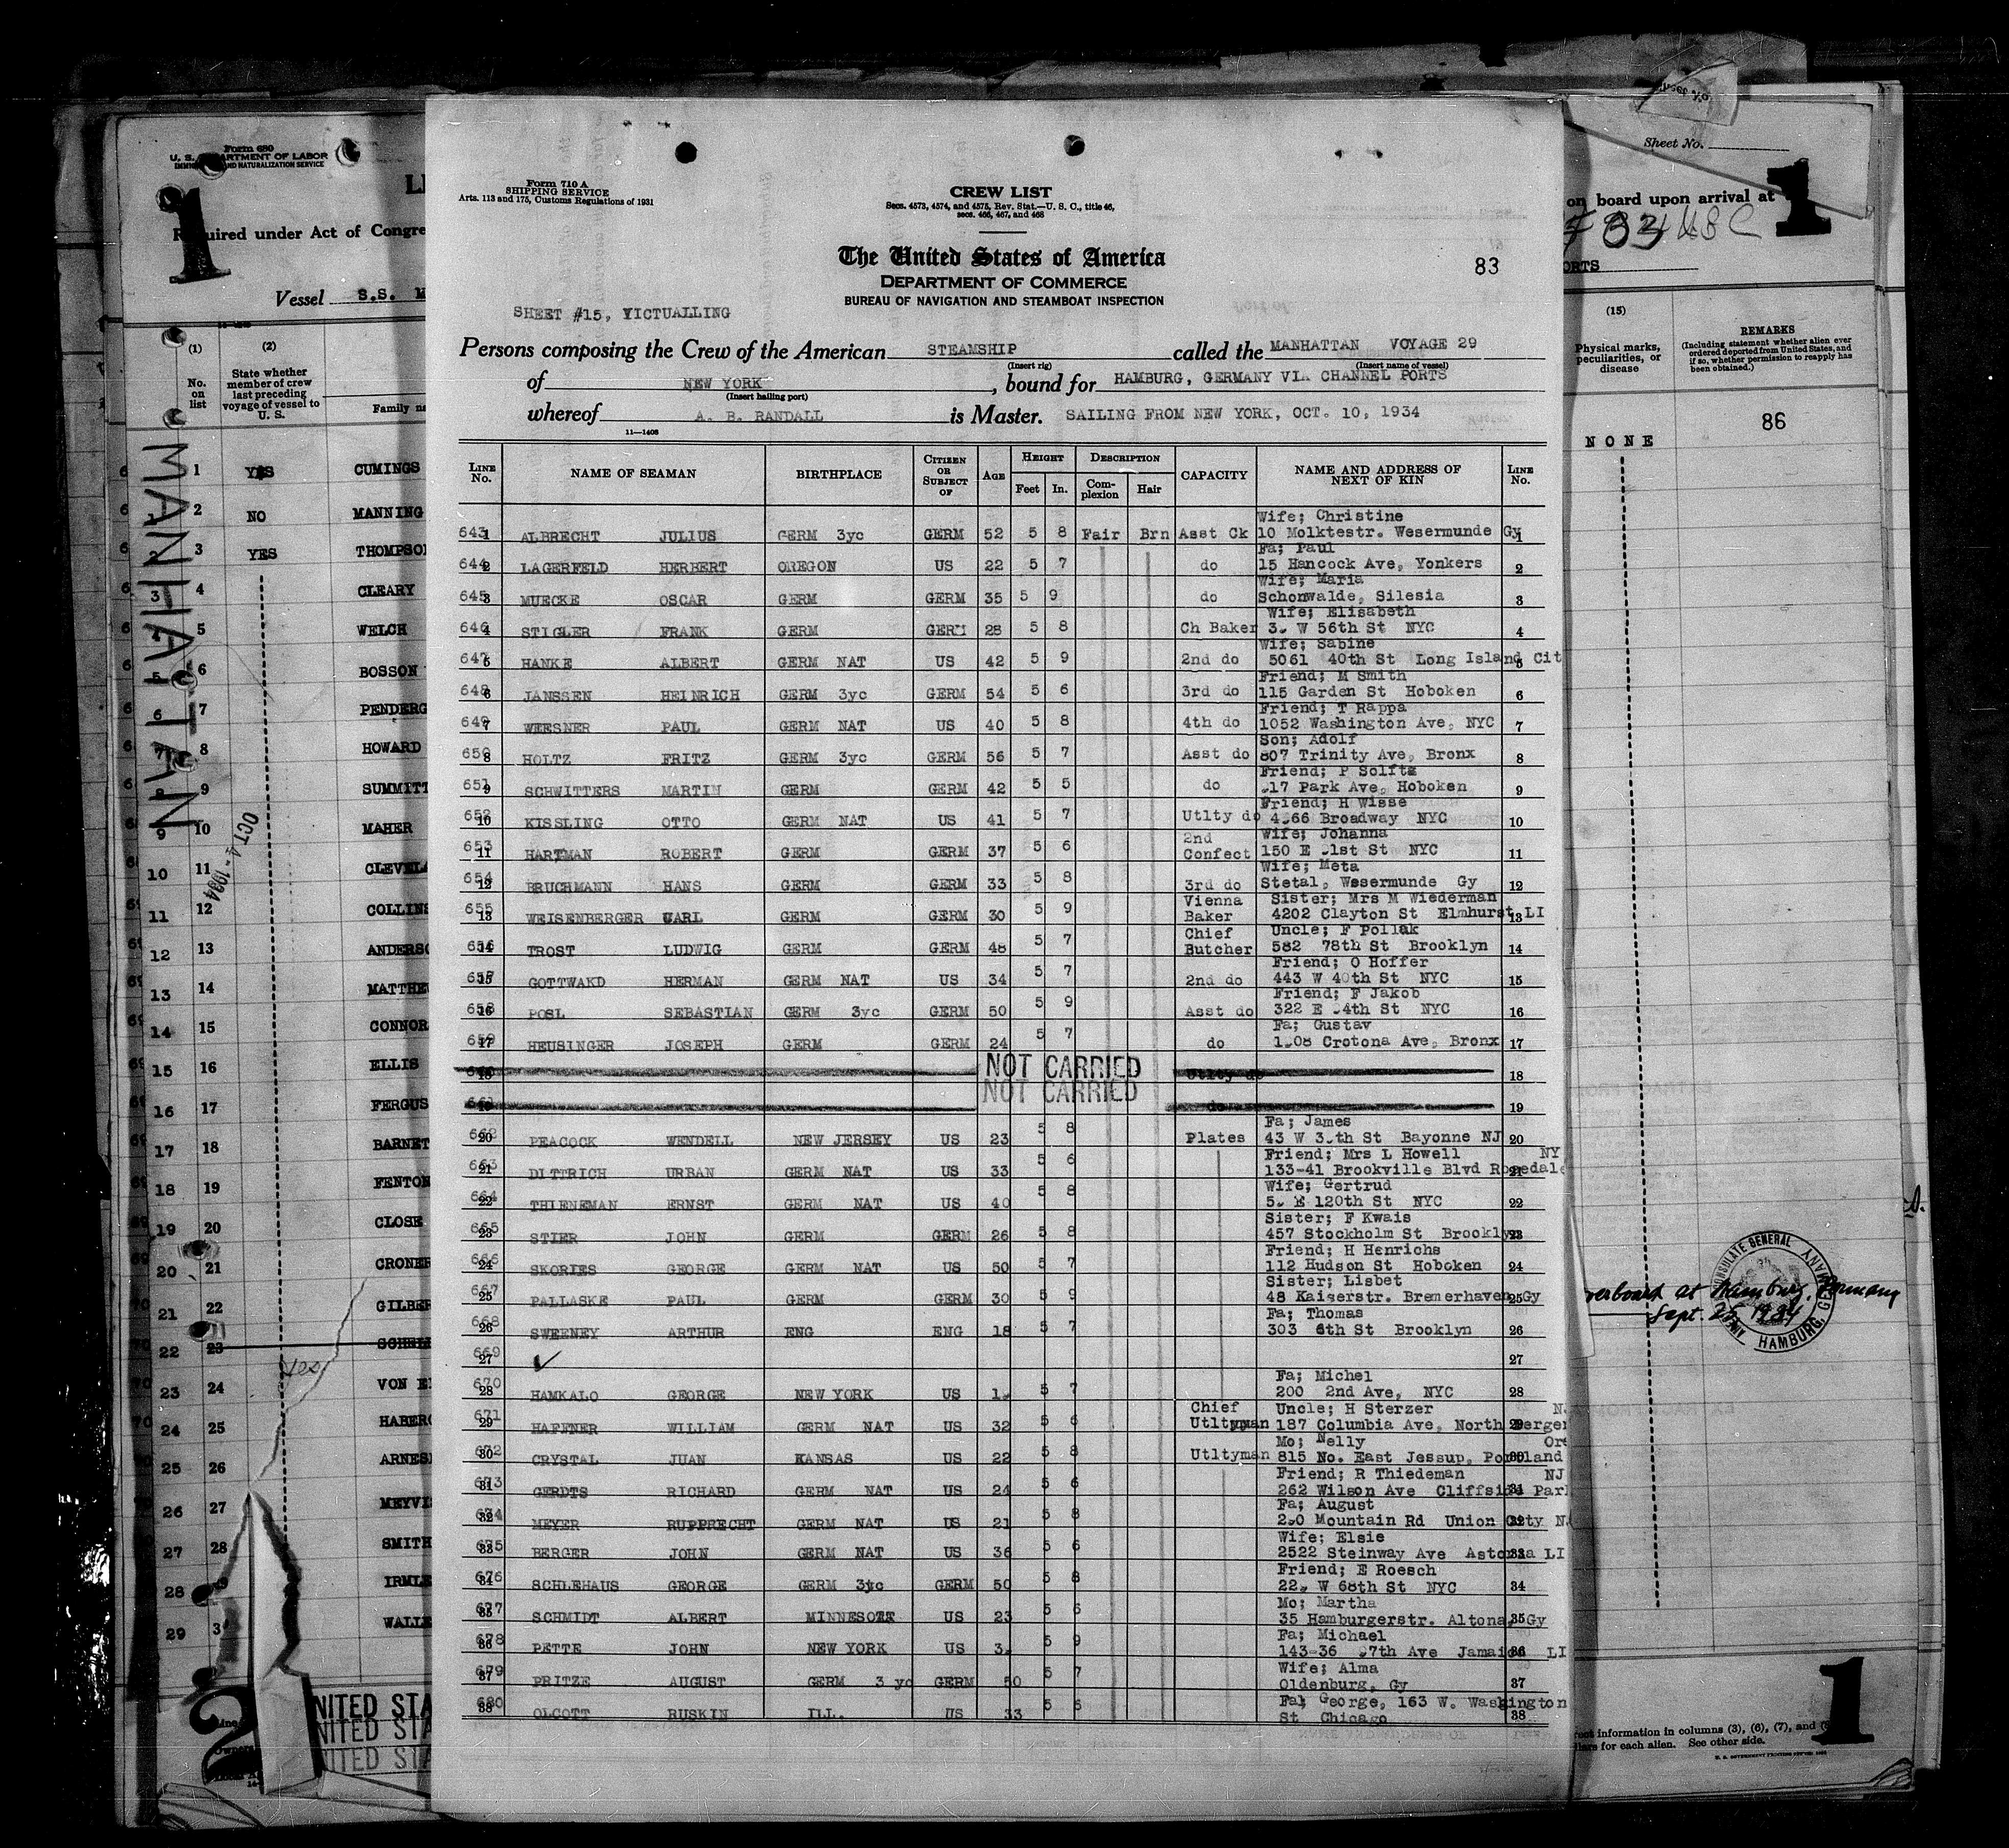 Form 680
U. S. DEPARTMENT OF LABOR
IMMIGRATION AND NATURALIZATION SERVICE
1
Required under Act of Congre
Vessel S.S. M
(1) (2)
No. on list
State whether member of crew last preceding voyage of vessel to U. S.
Family na
MANHATTAN
OCT 4 - 1934
1 YES CUMINGS
2 NO MANNING
3 YES THOMPSON
4 CLEARY
5 WELCH
6 BOSSON
7 PENDERG
8 HOWARD
9 SUMMITT
10 MAHER
11 CLEVELA
12 COLLINS
13 ANDERSO
14 MATTHE
15 CONNOR
16 ELLIS
17 FERGUS
18 BARNET
19 FENTON
20 CLOSE
21 CRONER
22 GILBER
23
24 VON E
25 HABERG
26 ARNES
27 MEYVI
28 SMITH
IRMLE
WALLE
2
UNITED STA
UNITED STA
UNITED STA
Form 710 A
SHIPPING SERVICE
Arts. 113 and 175, Customs Regulations of 1931
CREW LIST
Secs. 4573, 4574, and 4575, Rev. Stat.—U. S. C., title 46,
secs. 466, 467, and 468
The United States of America
DEPARTMENT OF COMMERCE
BUREAU OF NAVIGATION AND STEAMBOAT INSPECTION
83
SHEET #15, VICTUALLING
Persons composing the Crew of the American STEAMSHIP called the MANHATTAN VOYAGE 29
(Insert rig) (Insert name of vessel)
of NEW YORK, bound for HAMBURG, GERMANY VIA CHANNEL PORTS
(Insert hailing port)
whereof A. B. RANDALL is Master. SAILING FROM NEW YORK, OCT. 10, 1934
11—1408
LINE No. NAME OF SEAMAN BIRTHPLACE CITIZEN OR SUBJECT OF AGE HEIGHT Feet In. DESCRIPTION Complexion Hair CAPACITY NAME AND ADDRESS OF NEXT OF KIN LINE No.
Wife; Christine
643 1 ALBRECHT JULIUS GERM 3yc GERM 52 5 8 Fair Brn Asst Ck 10 Molktestr. Wesermunde Gy 1
Fa; Paul
644 2 LAGERFELD HERBERT OREGON US 22 5 7 do 15 Hancock Ave, Yonkers 2
Wife; Maria
645 3 MUECKE OSCAR GERM GERM 35 5 9 Schonwalde, Silesia 3
Wife; Elisabeth
646 4 STIGLER FRANK GERM GERM 28 5 8 Ch Baker W 56th St NYC 4
Wife; Sabine
647 5 HANKE ALBERT GERM NAT US 42 5 9 2nd do 5061 40th St Long Island Cit 5
Friend; M Smith
648 6 JANSSEN HEINRICH GERM 3yc GERM 54 5 6 3rd do 115 Garden St Hoboken 6
Friend; T Rappa
649 7 WEESNER PAUL GERM NAT US 40 5 8 4th do 1052 Washington Ave, NYC 7
Son; Adolf
650 8 HOLTZ FRITZ GERM 3yc GERM 56 5 7 Asst do 807 Trinity Ave, Bronx 8
Friend; P Solftz
651 9 SCHWITTERS MARTIN GERM GERM 42 5 5 do Park Ave, Hoboken 9
Friend; H Wisse
652 10 KISSLING OTTO GERM NAT US 41 5 7 Utlty do Broadway NYC 10
Wife; Johanna
653 11 HARTMAN ROBERT GERM GERM 37 5 6 2nd Confect 150 E St NYC 11
Wife; Meta
654 12 BRUCHMANN HANS GERM GERM 33 5 8 3rd do Stetal, Wesermunde Gy 12
Sister; Mrs M Wiederman
655 13 WEISENBERGER CARL GERM GERM 30 5 9 Vienna Baker 4202 Clayton St Elmhurst LI 13
Uncle; F Pollak
656 14 TROST LUDWIG GERM GERM 48 5 7 Chief Butcher 582 78th St Brooklyn 14
Friend; O Hoffer
657 15 GOTTWAKD HERMAN GERM NAT US 34 5 7 2nd do 443 W 40th St NYC 15
Friend; F Jakob
658 16 POSL SEBASTIAN GERM 3yc GERM 50 5 9 Asst do 322 E St NYC 16
Fa; Gustav
659 17 HEUSINGER JOSEPH GERM GERM 24 5 7 do Crotona Ave, Bronx 17
NOT CARRIED Utlty do 18
NOT CARRIED do 19
Fa; James
662 20 PEACOCK WENDELL NEW JERSEY US 23 5 8 Plates 43 W St Bayonne NJ 20
Friend; Mrs L Howell NY
663 21 DITTRICH URBAN GERM NAT US 33 5 6 133-41 Brookville Blvd Rosedale 21
Wife; Gertrud
664 22 THIENEMAN ERNST GERM NAT US 40 5 8 E 120th St NYC 22
Sister; F Kwais
665 23 STIER JOHN GERM GERM 26 5 8 457 Stockholm St Brooklyn 23
Friend; H Henrichs
666 24 SKORIES GEORGE GERM NAT US 50 5 7 112 Hudson St Hoboken 24
Sister; Lisbet
667 25 PALLASKE PAUL GERM GERM 30 5 9 48 Kaiserstr. Bremerhaven Gy 25
Fa; Thomas
668 26 SWEENEY ARTHUR ENG ENG 18 5 7 303 6th St Brooklyn 26
669 27 ✓ 27
Fa; Michel
670 28 HAMKALO GEORGE NEW YORK US 5 7 200 2nd Ave, NYC 28
Uncle; H Sterzer N
671 29 HAFFNER WILLIAM GERM NAT US 32 5 6 Chief Utltyman 187 Columbia Ave, North Bergen 29
Mo; Nelly Ore
672 30 CRYSTAL JUAN KANSAS US 22 5 8 Utltyman 815 No. East Jessup, Portland 30
Friend; R Thiedeman NJ
673 31 GERDTS RICHARD GERM NAT US 24 5 6 262 Wilson Ave Cliffside Park 31
Fa; August
674 32 MEYER RUPPRECHT GERM NAT US 21 5 8 Mountain Rd Union City NJ 32
Wife; Elsie
675 33 BERGER JOHN GERM NAT US 36 5 6 2522 Steinway Ave Astoria LI 33
Friend; E Roesch
676 34 SCHLEHAUS GEORGE GERM 3yc GERM 50 5 8 W 68th St NYC 34
Mo; Martha
677 35 SCHMIDT ALBERT MINNESOTA US 23 5 6 35 Hamburgerstr. Altona, Gy 35
Fa; Michael
678 36 PETTE JOHN NEW YORK US 5 9 143-36 Ave Jamaica LI 36
Wife; Alma
679 37 PRITZE AUGUST GERM 3 yc GERM 50 5 7 Oldenburg, Gy 37
Fa; George, 163 W. Washington
680 38 OLCOTT RUSKIN ILL. US 33 5 6 St Chicago 38
Sheet No.
1
on board upon arrival at
ORTS
(15)
Physical marks, peculiarities, or disease
REMARKS
(Including statement whether alien ever ordered deported from United States, and if so, whether permission to reapply has been obtained.)
86
NONE
overboard at Hamburg, Germany
Sept. 25, 1934
CONSULATE GENERAL HAMBURG, GERMANY
1
rect information in columns (3), (6), (7), and
llars for each alien. See other side.